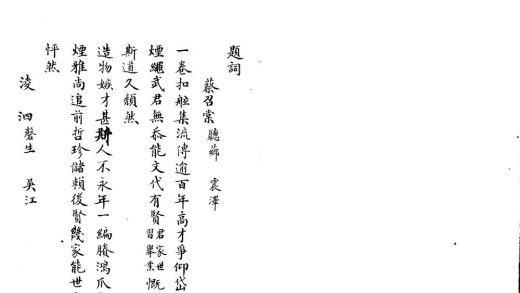 題詞
蔡召棠 聽薌 震澤
一卷扣舷集流傳逾百年高才爭仰岱
煙繩武君無忝能文代有賢君家世習舉業慨
斯道久頹然
造物嫉才甚斯人不永年一編賸鴻爪
煙雅尚追前哲珍儲賴後賢幾家能世
怦然
淩泗 磬生 吳江